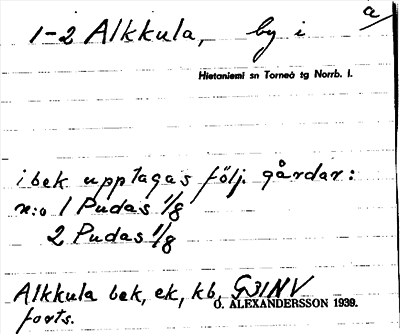 a
1-2 Alkkula, by i
Hietaniemi sn Torneå tg Norrb. l.
i bek upptagas följ. gårdar:
n:o 1 Pudas 1/8
2 Pudas 1/8
Alkkula bek, ek, kb, G31NV
O. ALEXANDERSSON 1939.
forts.